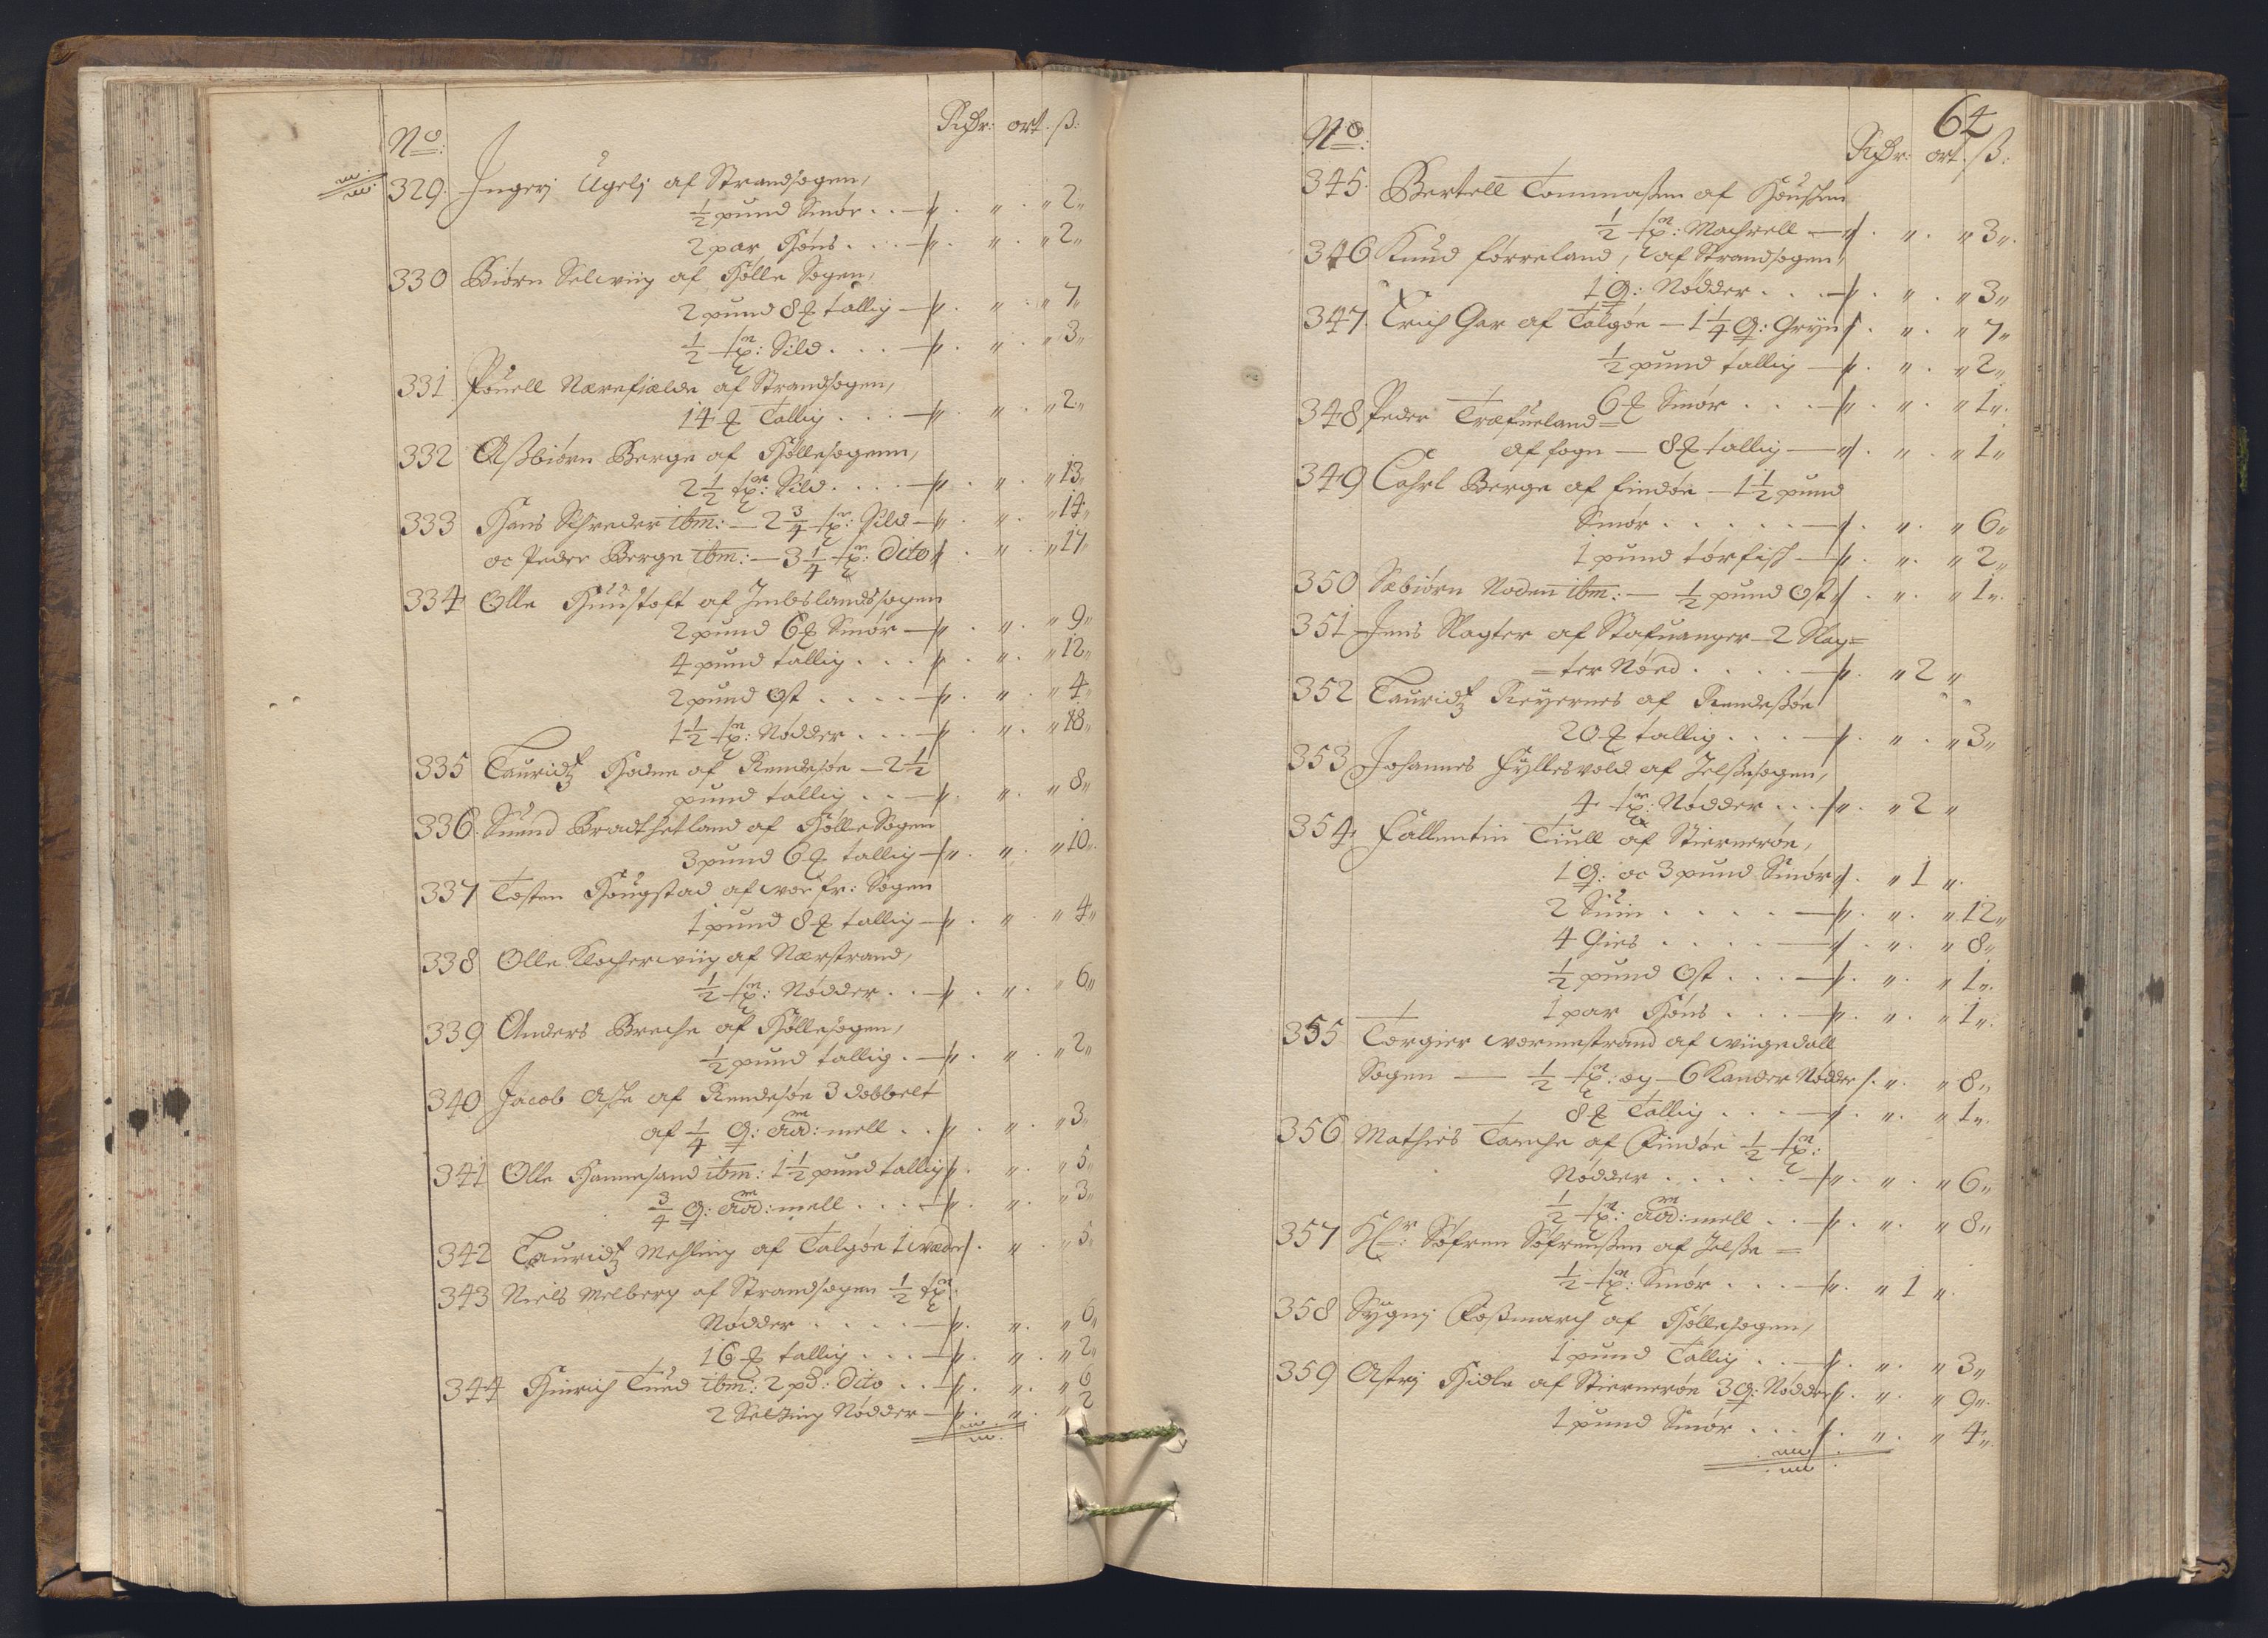 No: Rdr: ort. ß:
329. Ingerj Ugelj af Strandsogen,
½ pund Smør . . — „ . „ . „ 2„
2 par Høns . . . — „ . „ . „ 2„
330 Biørn Selwiig af Hølle Sogen,
2 pund 8 ℔ tallig — „ . „ . „ 7„
½ tn: Sild . . . — „ . „ . „ 3„
331 Pouell Nærefielde af Strandsogen,
14 ℔ Tallig . . . — „ . „ . „ 2„
332 Aßbiørn Berge af Høllesogenn,
2½ tn: Sild . . . . — „ . „ . „ 13„
333 Hans Schreder ibm: — 2¾ tn: Sild — „ . „ . „ 14„
oc Peder Berge ibm: — 3¼ tn: Dito „ . „ . „ 17„
334 Olle Huustoft af Imbslandssogen
2 pund 6 ℔ Smør — „ . „ . „ 9„
4 pund tallig . . . „ . „ . „ 12„
2 pund Ost . . . . — „ . „ . „ 4„
1½ tn: Nødder . . . — „ . „ . „ 18„
335 Lauridtz Hodne af Rendesøe — 2½
pund tallig . . — „ . „ . „ 8„
336. Suend Bradthetland af Hølle Sogen
3 pund 6 ℔ tallig — „ . „ . „ 10„
337 Tosten Hougstad af wor fr: Sogen
1 pund 8 ℔ tallig — „ . „ . „ 4„
338 Olle Klocherwiig af Nærstrand,
½ tn: Nødder . . — „ . „ . „ 6„
339 Anders Breche af Høllesogen,
½ pund tallig . — „ . „ . „ 2„
340 Jacob Aske af Rendesøe 3 dobbelt
af ¼ Q: mell . . „ . „ . „ 3„
341 Olle Hannesand ibm: 1½ pund tallig „ . „ . „ 5„
¾ Q: mell . . . — „ . „ . „ 3„
342 Lauridtz Mehling af Talgøe 1 wæder „ . „ . „ 5„
343 Niels Melberg af Strandsogen ½ tn:
Nødder . . . . — „ . „ . „ 6„
16 ℔ tallig . . . — „ . „ . „ 2„
344 Hinrich Tuud ibm: 2 pd: dito . . — „ . „ . „ 6
2 Nødder — „ . „ . „ 2
64
No: Rdr: ort. ß:
345. Bertell Tommaßen af Houssken
½ tn: Machrell — „ . „ . „ 3„
346 Knud førreland, af Strandsogen,
1 Q: Nødder . . . — „ . „ . „ 3„
347. Erich Gar af Talgøe — 1¼ Q: Gryn „ . „ . „ 7„
½ pund tallig — „ . „ . „ 2„
6 ℔ Smør . . . — „ . „ . „ 1„
348 Peder Træfueland=
af fogn — 8 ℔ tallig — „ . „ . „ 1„
349 Carl Berge af findøe — 1½ pund
Smør . . . . . — „ . „ . „ 6„
1 pund tørfisk — „ . „ . „ 2„
350 Sæbiørn Noden ibm: — ½ pund Ost „ . „ . „ 1„
351 Jens Slagter af Stafuanger — 2 Slag=
=ter Nød . . . . — „ . „ 2 „
352 Lauridtz Reyernes af Rendeßøe
20 ℔ tallig . . . — „ . „ . „ 3„
353 Johannes Hyllesvold af Jelßesogen,
4 tn: Nødder . . — „ . „ 2 „
354 Fallentin Tiull af Stiernerøe,
1 Q: oc 3 pund Smør „ . „ 1 „
2 Suin . . . . — „ . „ . „ 12„
4 Gies . . . . — „ . „ . „ 8„
½ pund Ost . . . — „ . „ . „ 1„
1 par Høns . . . — „ . „ . „ 1„
355 Torgier wormestrand af wiigedall
Sogen — ½ tn: og — 6 Kander Nødder „ . „ . „ 8„
8 ℔ Tallig . . . — „ . „ . „ 1„
356 Mathies Torche af Findøe ½ tn:
Nødder . . . . . — „ . „ . „ 6„
½ tn: mell . . — „ . „ . „ 8„
357 Hr: Søfren Søfrenßen af Jelße =
½ tn: Smør . . . — „ . „ 1 „
358 Sygni Foßmarch af Høllesogen,
1 pund Tallig . . — „ . „ . „ 3„
359 Astrj Hidle af Stiernerøe 3 Q: Nødder „ . „ . „ 9„
1 pund Smør . . . „ . „ . „ 4„